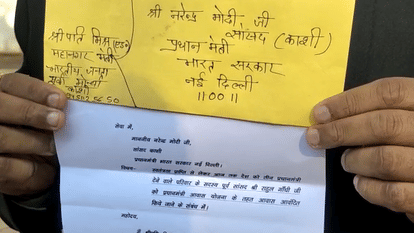 श्री नरेन्द्र मोदी जी
सांसद (काशी)
प्रधान मंत्री
भारत सरकार
नई दिल्ली
110011
श्रीपति मिश्र
महानगर मंत्री
भारतीय जनता
युवा मोर्चा
काशी
सेवा में,
माननीय नरेन्द्र मोदी जी,
सांसद काशी
प्रधानमंत्री भारत सरकार नई दिल्ली।
विषय- से लेकर आज तक देश को तीन प्रधानमंत्री
देने वाले परिवार के सदस्य पूर्व सांसद श्री राहुल गाँधी जी
को प्रधानमंत्री आवास योजना के तहत आवास आवंटित
किये जाने के संबंध में।
महोदय,